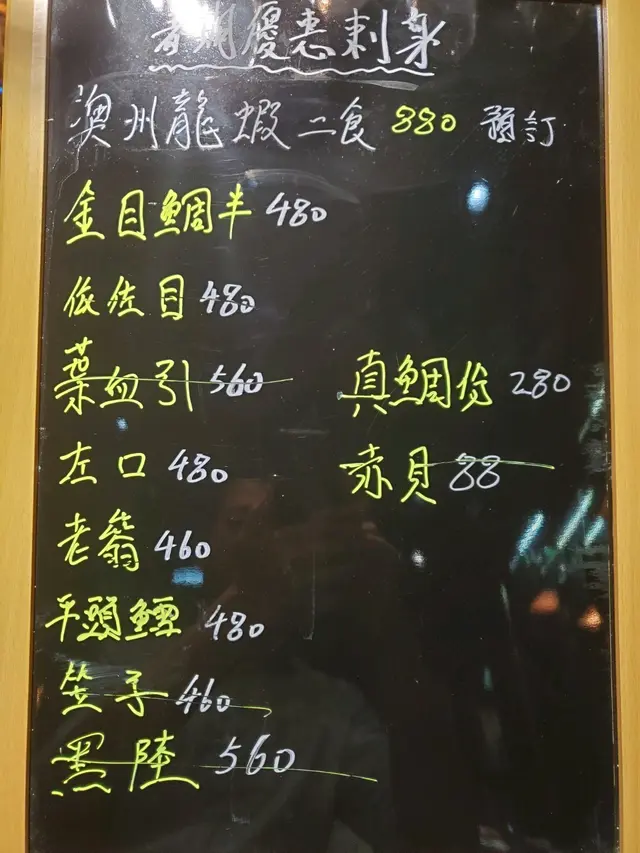 暑期優惠刺身
澳州龍蝦二食 880 預訂
金目鯛半 480
依佐目 480
葉血引 560 真鯛份 280
左口 480 赤貝 88
老翁 460
平頭 480
笠子 460
黑陸 560